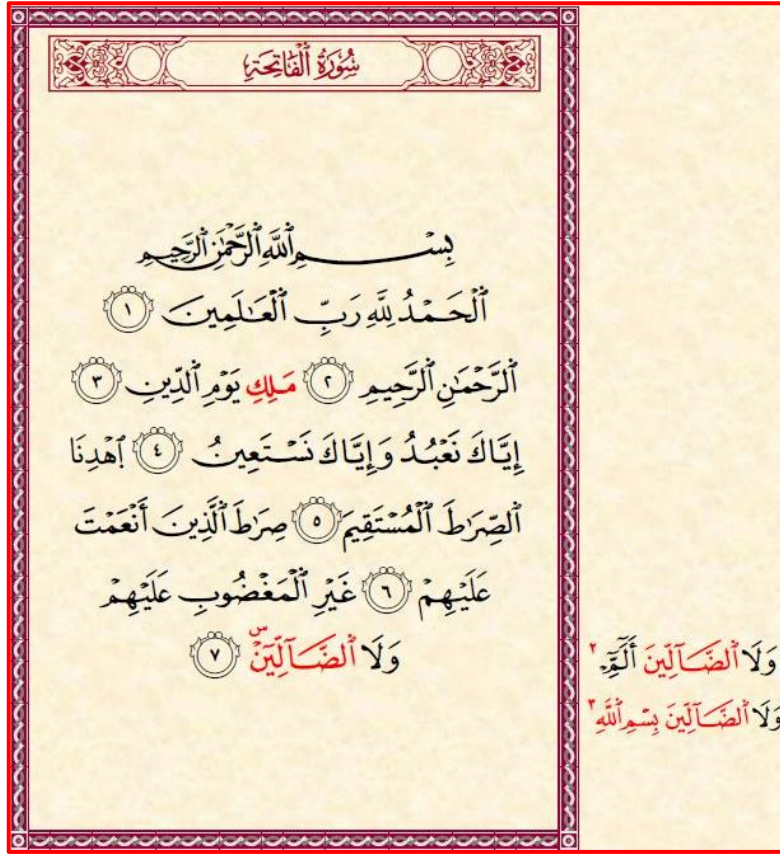 سُورَةُ ٱلْفَاتِحَةِ
بِسْمِ ٱللَّهِ ٱلرَّحْمَٰنِ ٱلرَّحِيمِ
ٱلْحَمْدُ لِلَّهِ رَبِّ ٱلْعَٰلَمِينَ ١
ٱلرَّحْمَٰنِ ٱلرَّحِيمِ ٢ مَلِكِ يَوْمِ ٱلدِّينِ ٣
إِيَّاكَ نَعْبُدُ وَإِيَّاكَ نَسْتَعِينُ ٤ ٱهْدِنَا
ٱلصِّرَٰطَ ٱلْمُسْتَقِيمَ ٥ صِرَٰطَ ٱلَّذِينَ أَنْعَمْتَ
عَلَيْهِمْ ٦ غَيْرِ ٱلْمَغْضُوبِ عَلَيْهِمْ
وَلَا ٱلضَّآلِّينَ ۜ ٧
وَلَا ٱلضَّآلِّينَ أَلَٓمِّٓ ٢
وَلَا ٱلضَّآلِّينَ بِسْمِ ٱللَّهِ ٣